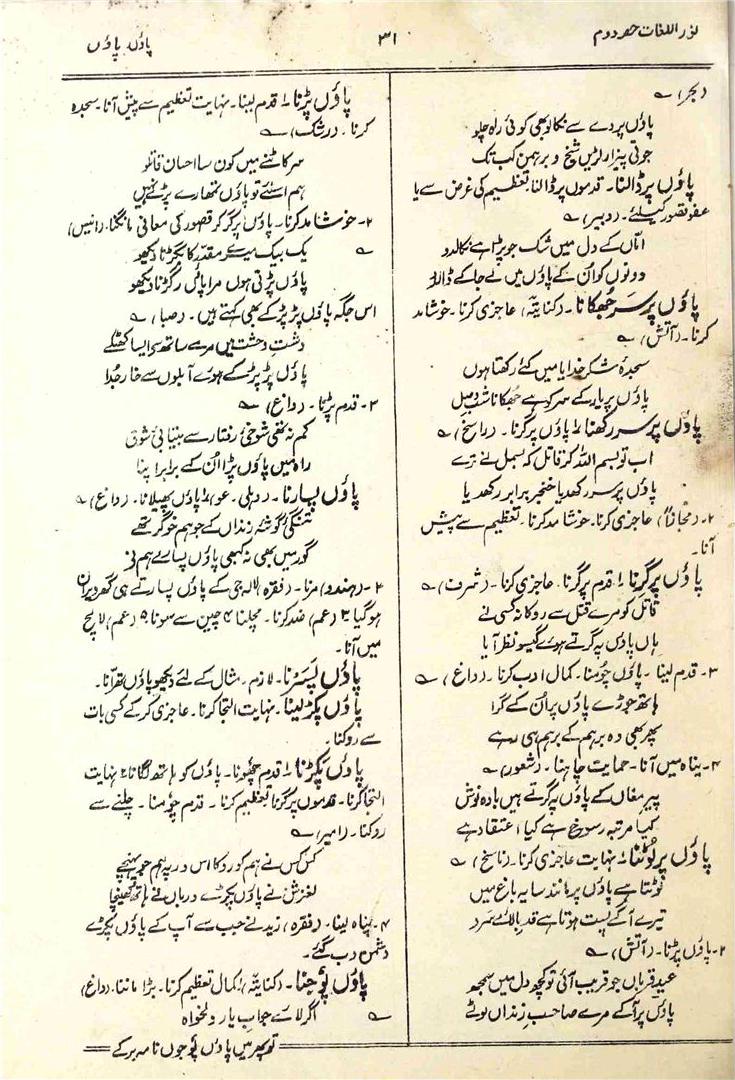 نور اللغات حصہ دوم
۳۱
پاؤں پاؤں
(بحر) ؎
پاؤں پردے سے نکالو بھی کوئی راہ چلو
جوتی پیزار لڑیں شیخ و برہمن کب تک
پاؤں پر ڈالنا۔ قدموں پر ڈالنا تعظیم کی غرض سے یا
عفو تقصور کیلئے۔ (دبیر) ؎
اماں کے دل میں شک جو پڑا ہے نکالدو
دونوں کو اُن کے پاؤں میں لے جا کے ڈالدو
پاؤں پر سَر جُھکانا۔ (کنایتہً) عاجزی کرنا۔ خوشامد
کرنا۔ (آتش) ؎
سجدۂ شکر خدایا میں کئے رکھتا ہوں
پاؤں پر یار کے سر کو ہے جُھکانا شب وصل
پاؤں پر سر رکھنا ۱۔ پاؤں پر گرنا۔ (راسخ) ؎
اب تو بسم اللہ کر قاتل کہ بسمل نے ترے
پاؤں پر سر رکھدیا خنجر برابر رکھدیا
۲۔ (مجازاً) عاجزی کرنا۔ خوشامد کرنا۔ تعظیم سے پیش
آنا۔
پاؤں پر گرنا ۱۔ قدم پر گرنا۔ عاجزی کرنا۔ (شرف) ؎
قاتل کو مرے قتل سے روکا نہ کسی نے
ہاں پاؤں پہ گرتے ہوئے گیسو نظر آیا
۳۔ قدم لینا۔ پاؤں چُومنا۔ کمال ادب کرنا۔ (داغ) ؎
ہاتھ جوڑے پاؤں پر اُن کے گرا
پھر بھی وہ برہم کے برہم ہی رہے
۴۔ پناہ میں آنا۔ حمایت چاہنا۔ (شعور) ؎
پیر مغاں کے پاؤں پہ گرتے ہیں بادہ نوش
کیا مرتبہ رسوخ ہے کیا اعتقاد ہے
پاؤں پر لَوٹنا ۱۔ نہایت عاجزی کرنا۔ (ناسخ) ؎
لوٹتا ہے پاؤں پر مانند سایہ باغ میں
تیرے آگے پست ہوتا ہے قد بالائے سرد
۲۔ پاؤں پڑنا۔ (آتش) ؎
عید قرباں جو قریب آئی تو کچھ دل میں سمجھ
پاؤں پر آکے مرے صاحب زنداں لوٹے
پاؤں پڑنا ۱۔ قدم لینا۔ نہایت تعظیم سے پیش آنا۔ سجدہ
کرنا۔ (رشک) ؎
سر کاٹنے میں کون سا احسان قاتلو
ہم اسلئے تو پاؤں تمھارے پڑے نہیں
۲۔ خوشامد کرنا۔ پاؤں پر گر کر قصور کی معافی مانگنا۔ (انیس)
؎ یک بیک میرے مقدّر کا بگڑنا دیکھو
پاؤں پڑتی ہوں مرا پائں رگڑنا دیکھو
اس جگہ پاؤں پڑ پڑ کے بھی کہتے ہیں۔ (صبا) ؎
دشتِ وحشت میں مرے ساتھ سے ایسا کھٹکے
پاؤں پڑ پڑ کے ہوئے آبلوں سے خار جُدا
۳۔ قدم پڑنا۔ (داغ) ؎
کم نہ تھی شوخیٔ رفتار سے بیتابیٔ شوق
راہ میں پاؤں پڑا اُن کے برابر اپنا
پاؤں پسارنا۔ (دہلی۔ عو) ۱۔ پاؤں پھیلانا۔ (داغ) ؎
تنگئ گوشۂ زنداں کے جو ہم خوگر تھے
گور میں بھی نہ کبھی پاؤں پسارے ہم نے
۲۔ (ہندو) مرنا۔ (فقرہ) لالہ جی کے پاؤں پسارتے ہی گھر ویران
ہو گیا ۳ (عم) ضد کرنا۔ مچلنا ۴ چین سے سونا ۹ (عم) لالچ
میں آنا۔
پاؤں پَسَرنا۔ لازم۔ مثال کے لئے دیکھو پاؤں تھرّانا۔
پاؤں پکڑ لینا۔ نہایت التجا کرنا۔ عاجزی کر کے کسی بات
سے روکنا۔
پاؤں پکڑنا ۱۔ قدم چُھونا۔ پاؤں کو ہاتھ لگانا ۲ نہایت
التجا کرنا۔ قدموں پر گرنا تعظیم کرنا۔ قدم چومنا۔ چلنے سے
روکنا۔ (امیر) ؎
کس کس نے ہم کو روکا اس در پہ ہم جو پہنچے
لغزش نے پاؤں پکڑے درباں نے ہاتھ کھینچا
۴۔ پناہ لینا۔ (فقرہ) زید نے جب سے آپ کے پاؤں پکڑے
دشمن دب گئے۔
پاؤں پُوجنا۔ (کنایتہً) کمال تعظیم کرنا۔ بڑا ماننا۔ (داغ)
؎ اگر لائے جواب یار دلخواہ
تو پھر میں پاؤں پُوجوں نامہ بر کے